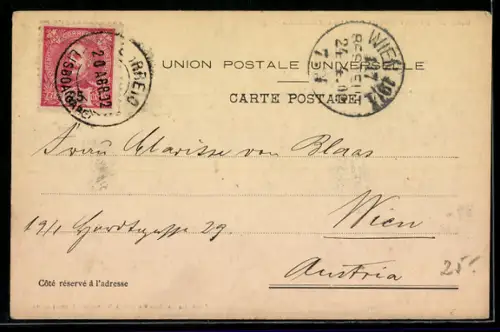 CORREIO
20 ABR 02
LISBOA
WIEN 19/1
BESTELLT
UNION POSTALE UNIVERSELLE
CARTE POSTALE
Frau Clarisse von Blaas
19/1 Hardtgasse 29.
Wien
Austria
Côté réservé à l'adresse
25.-